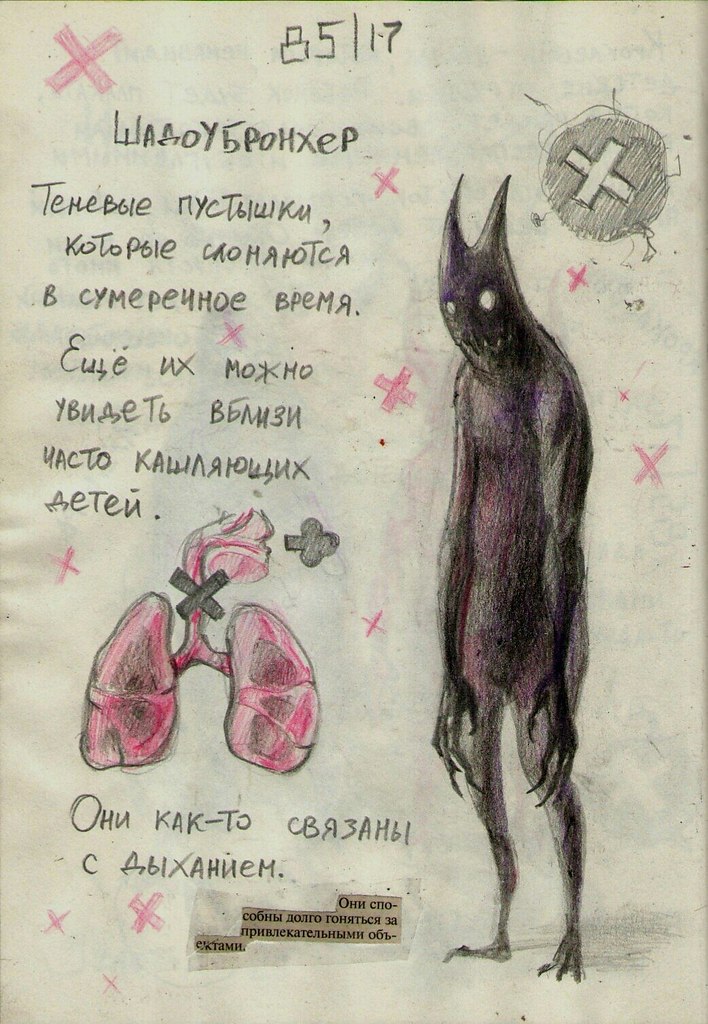 85|17
ШАДОУБРОНХЕР
Теневые пустышки,
которые слоняются
в сумеречное время.
Ещё их можно
увидеть вблизи
часто кашляющих
детей.
Они как-то связаны
с дыханием.
Они спо-
собны долго гоняться за
привлекательными объ-
ектами.